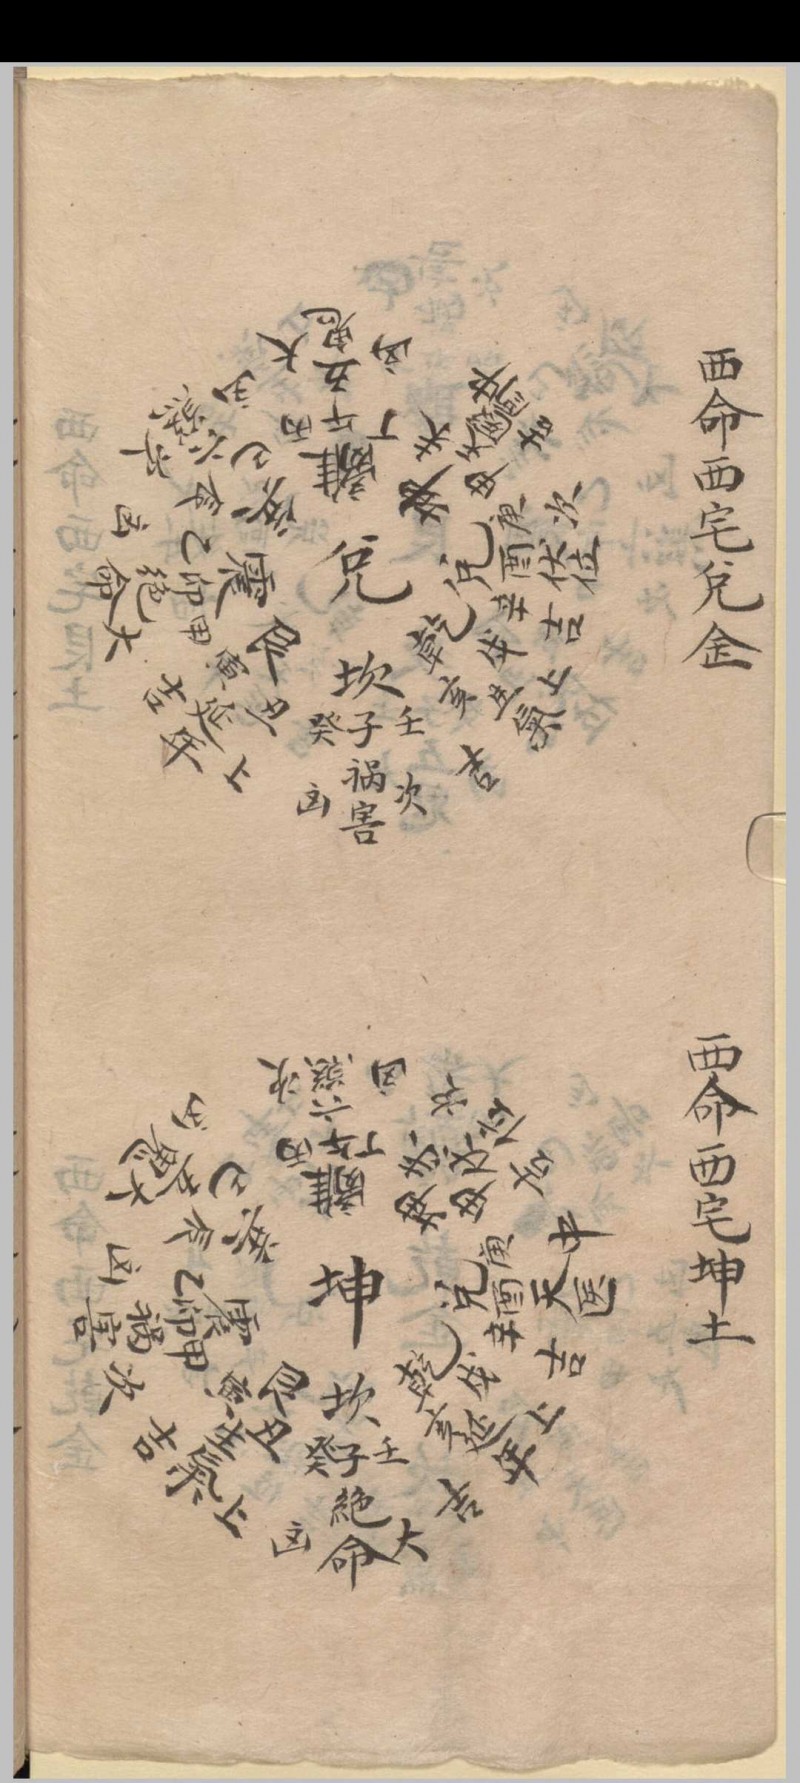 西命西宅兌金
兌
離
丙午丁
五鬼
大凶
庚
兌酉伏位
辛
次吉
乾
戌
亥
生氣
上吉
坎
癸子壬
禍害
次凶
艮
丑
寅
延年
上吉
震
甲卯乙
絕命
大凶
辰
巳
六煞
凶
西命西宅坤土
坤
離
丙午丁
六煞
次凶
伏位
吉
庚
兌酉天医
辛
中吉
乾
戌
亥
延年
上吉
坎
癸子壬
絕命
大凶
艮
丑
寅
生氣
上吉
震
甲卯乙
禍害
次凶
辰
巳
凶